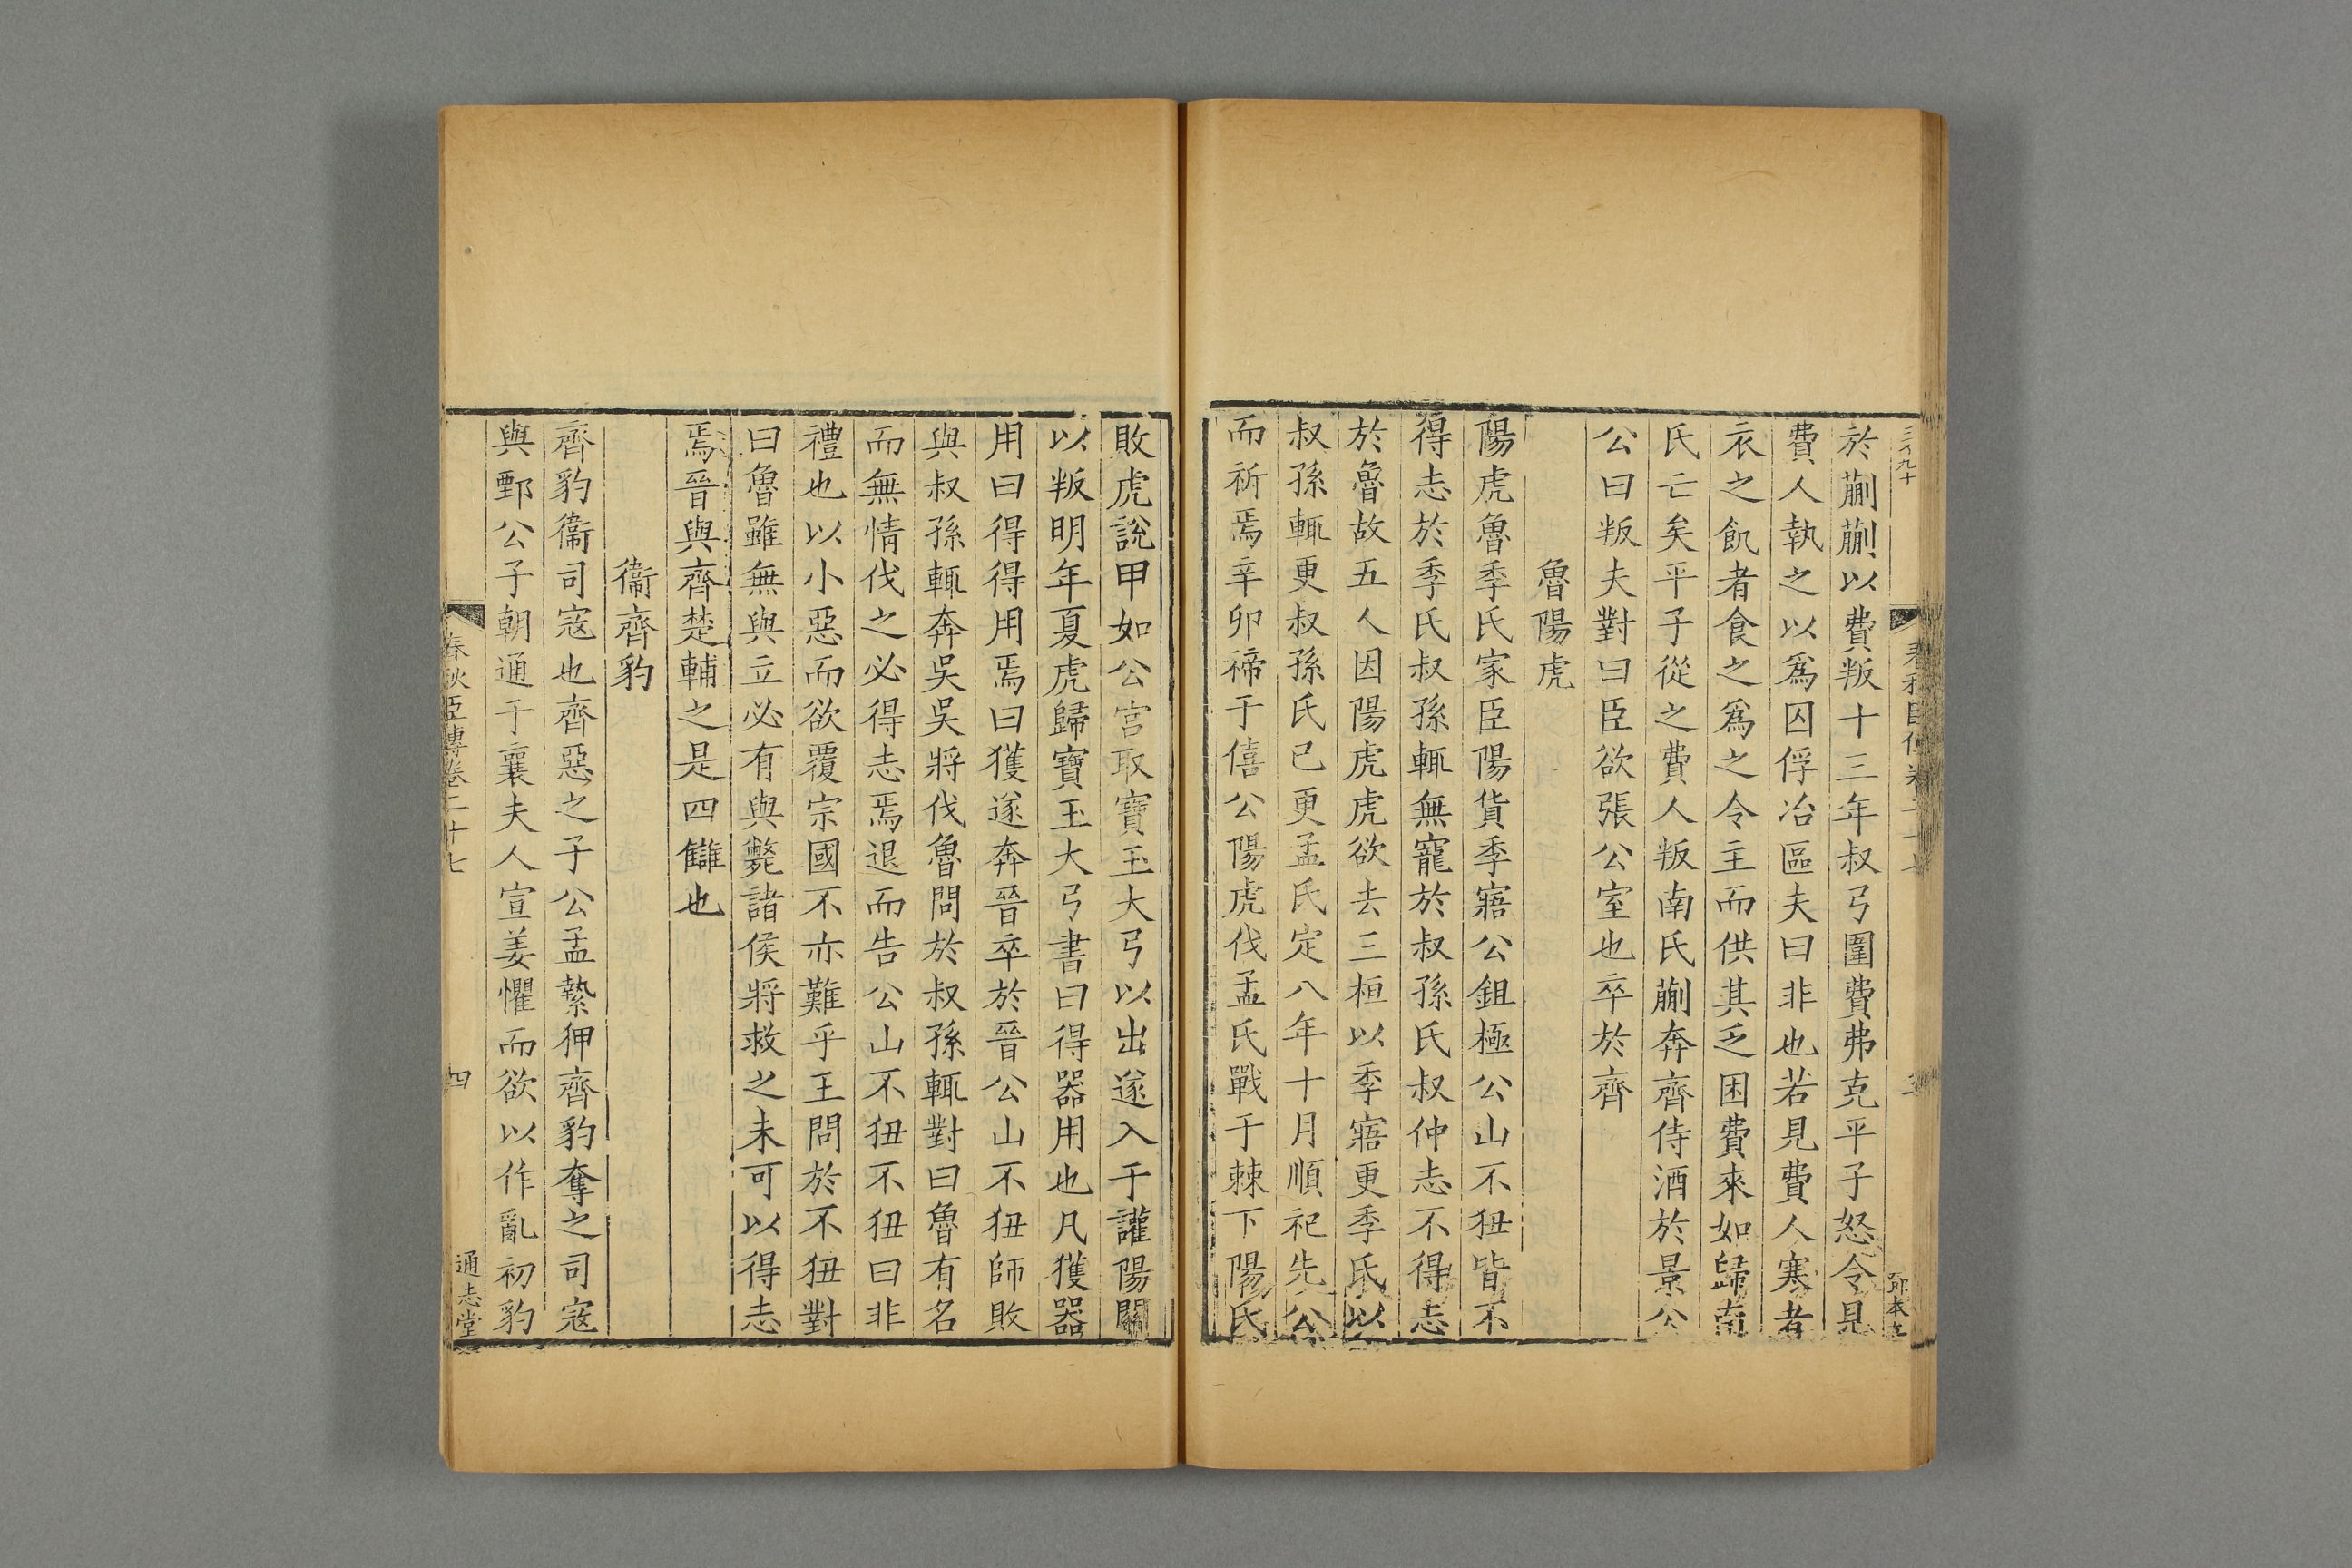 於蒯蒯以費叛十三年叔弓圍費弗克平子怒令見
費人執之以爲囚俘冶區夫曰非也若見費人寒者
衣之飢者食之爲之令主而供其乏困費來如歸南
氏亡矣平子從之費人叛南氏蒯奔齊侍酒於景公
公曰叛夫對曰臣欲張公室也卒於齊
魯陽虎
陽虎魯季氏家臣陽貨季寤公鉏極公山不狃皆不
得志於季氏叔孫輒無寵於叔孫氏叔仲志不得志
於魯故五人因陽虎虎欲去三桓以季寤更季氏以
叔孫輒更叔孫氏已更孟氏定八年十月順祀先公
而祈焉辛卯禘于僖公陽虎伐孟氏戰于棘下陽氏
敗虎說甲如公宮取寶玉大弓以出遂入于讙陽關
以叛明年夏虎歸寶玉大弓書曰得器用也凡獲器
用曰得得用焉曰獲遂奔晉卒於晉公山不狃師敗
與叔孫輒奔吳吳將伐魯問於叔孫輒對曰魯有名
而無情伐之必得志焉退而告公山不狃不狃曰非
禮也以小惡而欲覆宗國不亦難乎王問於不狃對
曰魯雖無與立必有與斃諸侯將救之未可以得志
焉晉與齊楚輔之是四讎也
衞齊豹
齊豹衞司寇也齊惡之子公孟縶狎齊豹奪之司寇
與鄄公子朝通于襄夫人宣姜懼而欲以作亂初豹
春秋臣傳卷二十七
四
通志堂